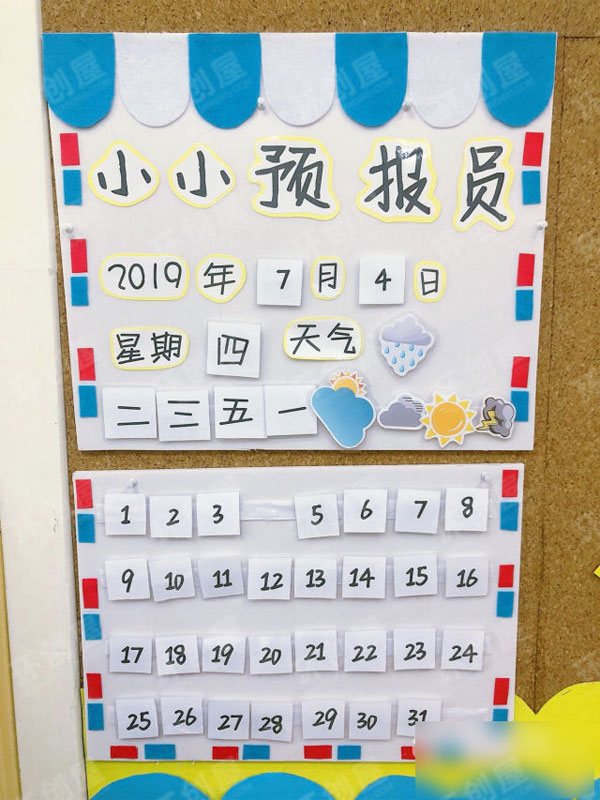 小小预报员
2019年7月4日
星期四天气
二三五一
1 2 3 5 6 7 8
9 10 11 12 13 14 15 16
17 18 19 20 21 22 23 24
25 26 27 28 29 30 31